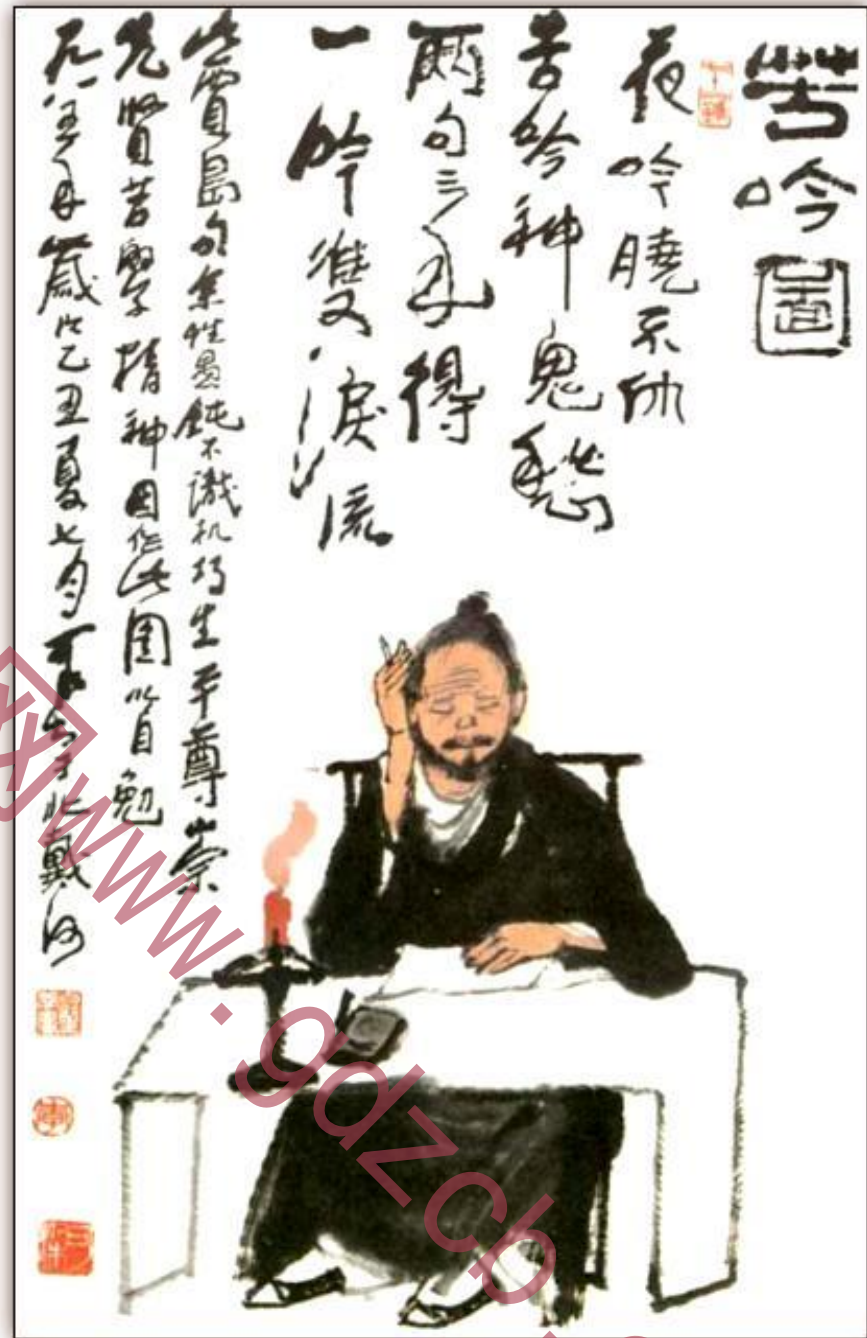 苦吟圖
夜吟曉不休
苦吟神鬼愁
兩句三年得
一吟雙淚流
此賈島句余性愚鈍不識机巧生平尊崇
先賢苦學精神因作此圖以自勉
一九八五年歲次乙丑夏七月可染于北戴河
网www.gdzcb.